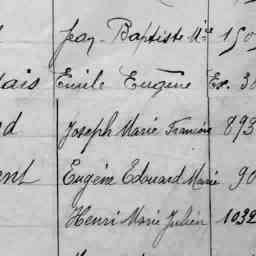 Jean-Baptiste Mie 150
Emile Eugène Ex. 30
Joseph Marie Francois 893
ent Eugène Edouard Marie 90
Henri Marie Julien 1032